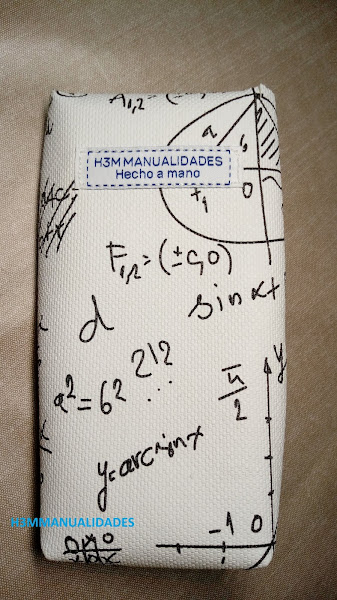 A₁,₂ = (±
a
b
H3M MANUALIDADES
Hecho a mano
0
F₁,₂ = (±c,0)
sin α+
d
212
...
a² = 6²
π/2
y
y=arcsinx
H3MMANUALIDADES
-1 0